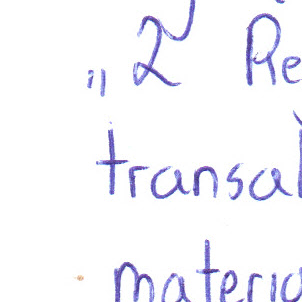 „ 2 Re
transal
materia